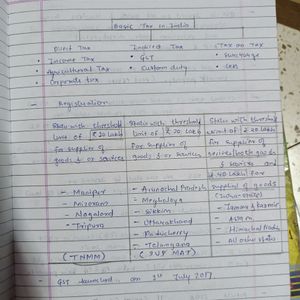 Basic Tax in India
Direct Tax Indirect Tax Tax on Tax
• Income Tax • GST • Surcharge
• Agricultural Tax • Custom duty • Cess
• Corporate tax
— Registration
State with threshold State with threshold State with threshold
limit of ₹ 10 Lakh limit of ₹ 20 Lakh limit of ₹ 20 Lakh
for supplier of For supplier of for supplier of
goods & or services goods & or services services/both goods
& services and
₹ 40 Lakh for
supplier of goods
(Intra-state)
— Manipur — Arunachal Pradesh — Jammu & Kashmir
— Mizoram — Meghalaya — Assam
— Nagaland — Sikkim — Himachal Pradesh
— Tripura — Uttarakhand — All other states
— Puducherry
— Telangana
(TNMM)
— GST launched on 1st July 2017